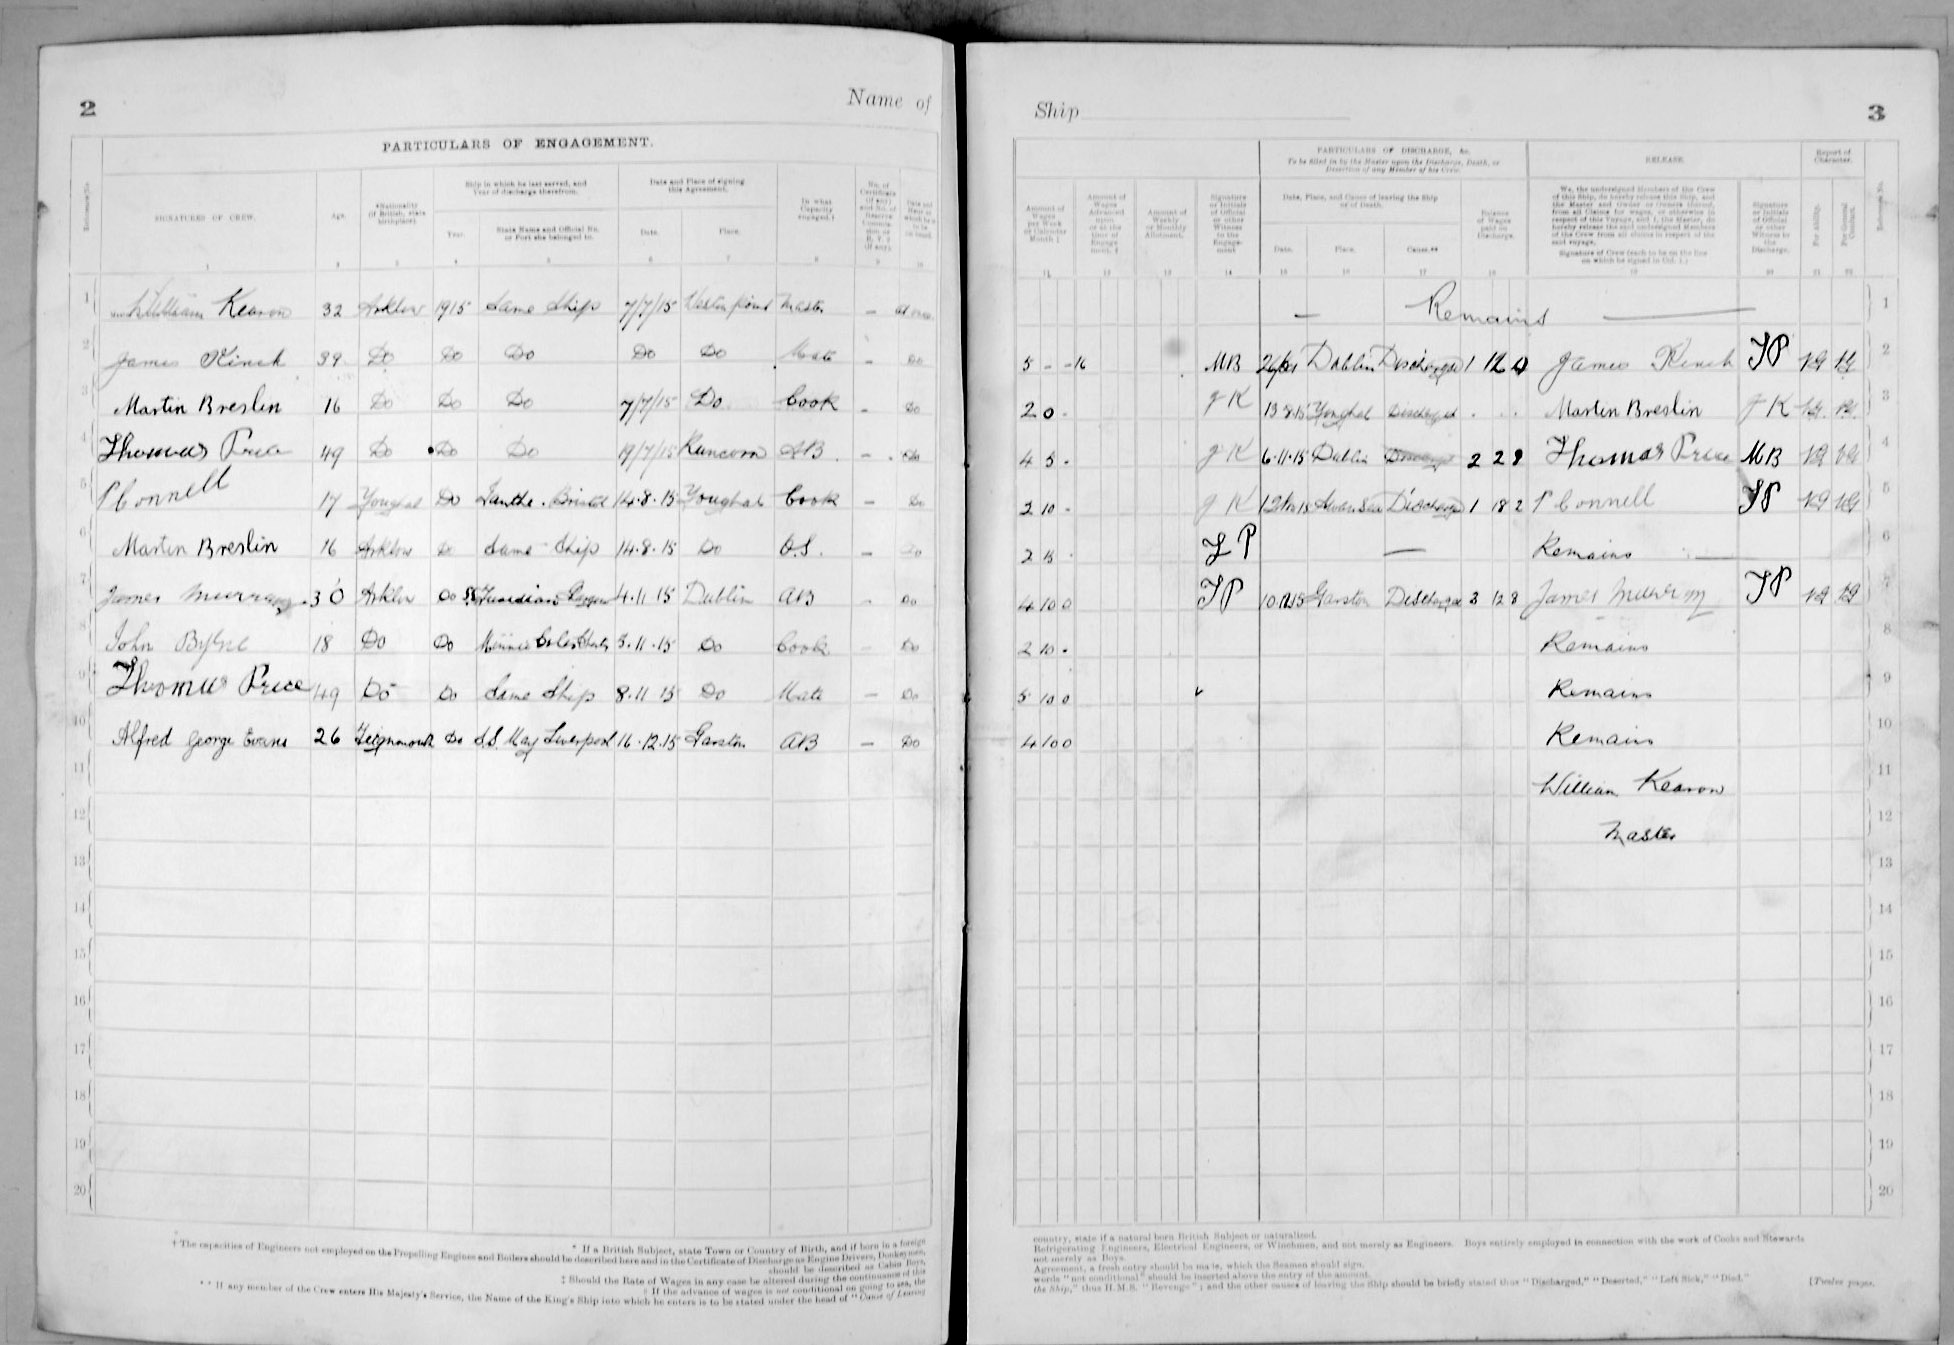 2
Name of
PARTICULARS OF ENGAGEMENT.
Reference No.
SIGNATURES OF CREW.
Age.
*Nationality (If British, state birthplace).
Ship in which he last served, and Year of discharge therefrom.
Year.
State Name and Official No. or Port she belonged to.
Date and Place of signing this Agreement.
Date.
Place.
In what Capacity engaged.†
1 2 3 4 5 6 7 8 9 10
1 William Kearon 32 Arklow 1915 Same Ship 7/7/15 Weston point Master – at once
2 James Kinch 39 Do Do Do Do Do Mate – Do
3 Martin Breslin 16 Do Do Do 7/7/15 Do Cook – Do
4 Thomas Price 49 Do Do Do 19/7/15 Runcorn AB – Do
5 P Connell 17 Youghal Do Ianthe. Bristol 14.8.15 Youghal Cook – Do
6 Martin Breslin 16 Arklow Do Same Ship 14.8.15 Do O.S. – Do
7 James Murray 30 Arklow Do SS Guardian 4.11.15 Dublin AB – Do
8 John Byrne 18 Do Do Minnie Coles 5.11.15 Do Cook – Do
9 Thomas Price 49 Do Do Same Ship 8.11.15 Do Mate – Do
10 Alfred George Evans 26 Teignmouth Do S.S. May Liverpool 16.12.15 Garston AB – Do
11
12
13
14
15
16
17
18
19
20
* If a British Subject, state Town or Country of Birth, and if born in a foreign
† The capacities of Engineers not employed on the Propelling Engines and Boilers should be described here and in the Certificate of Discharge as Engine Drivers, Donkeymen,
should be described as Cabin Boys,
‡ Should the Rate of Wages in any case be altered during the continuance of this
† If the advance of wages is not conditional on going to sea, the
** If any member of the Crew enters His Majesty's Service, the Name of the King's Ship into which he enters is to be stated under the head of "Cause of Leaving
Ship
3
PARTICULARS OF DISCHARGE, &c.
To be filled in by the Master upon the Discharge, Death, or Desertion of any Member of his Crew.
RELEASE
Report of Character.
Amount of Wages per Week or Calendar Month ‡
Amount of Wages Advanced upon or at the time of Engagement. †
Amount of Weekly or Monthly Allotment.
Signature or Initials of Official or other Witness to the Engagement
Date, Place, and Cause of leaving the Ship or of Death.
Date.
Place.
Cause.**
Balance of Wages paid on Discharge.
We, the undersigned Members of the Crew of this Ship, do hereby release this Ship, and the Master and Owner or Owners thereof, from all Claims for wages, or otherwise in respect of this Voyage, and I, the Master, do hereby release the said undersigned Members of the Crew from all claims in respect of the said voyage.
Signature of Crew (each to be on the line on which he signed in Col. 1.)
Signature or Initials of Official or other Witness to the Discharge.
For Ability.
For General Conduct.
Reference No.
11 12 13 14 15 16 17 18 19 20 21 22
– Remains – 1
5 - -16 MB Dublin Discharged 1 12 0 James Kinch TP VG VG 2
2 0 - JK 13 8 15 Youghal Discharged . . . Martin Breslin JK VG VG 3
4 5 - JK 6.11.15 Dublin Discharged 2 2 9 Thomas Price MB VG VG 4
2 10 - JK Swansea Discharged 1 18 2 P Connell TP VG VG 5
2 15 - TP – Remains – 6
4 10 0 TP 10.12.15 Garston Discharged 3 12 8 James Murray TP VG VG 7
2 10 - Remains 8
5 10 0 Remains 9
4 10 0 Remains 10
William Kearon 11
Master 12
13
14
15
16
17
18
19
20
country, state if a natural born British Subject or naturalised.
Refrigerating Engineers, Electrical Engineers, or Winchmen, and not merely as Engineers. Boys entirely employed in connection with the work of Cooks and Stewards
not merely as Boys.
Agreement, a fresh entry should be made, which the Seamen should sign.
words "not conditional" should be inserted above the entry of the amount.
the Ship," thus H.M.S. "Revenge"; and the other causes of leaving the Ship should be briefly stated thus "Discharged," "Deserted," "Left Sick," "Died."
[Twelve pages.